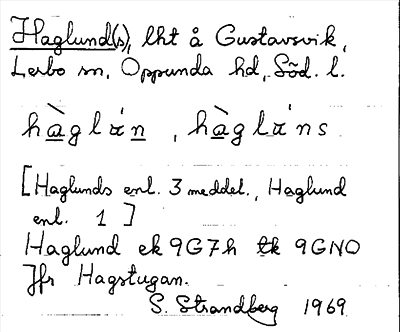 Haglund(s), lht å Gustavsvik,
Lerbo sn, Oppunda hd, Söd. l.
hàglα'n, hàglα'ns
[Haglunds enl. 3 meddel., Haglund
enl. 1]
Haglund ek 9G7h tk 9GNO
Jfr Hagstugan.
S. Strandberg 1969